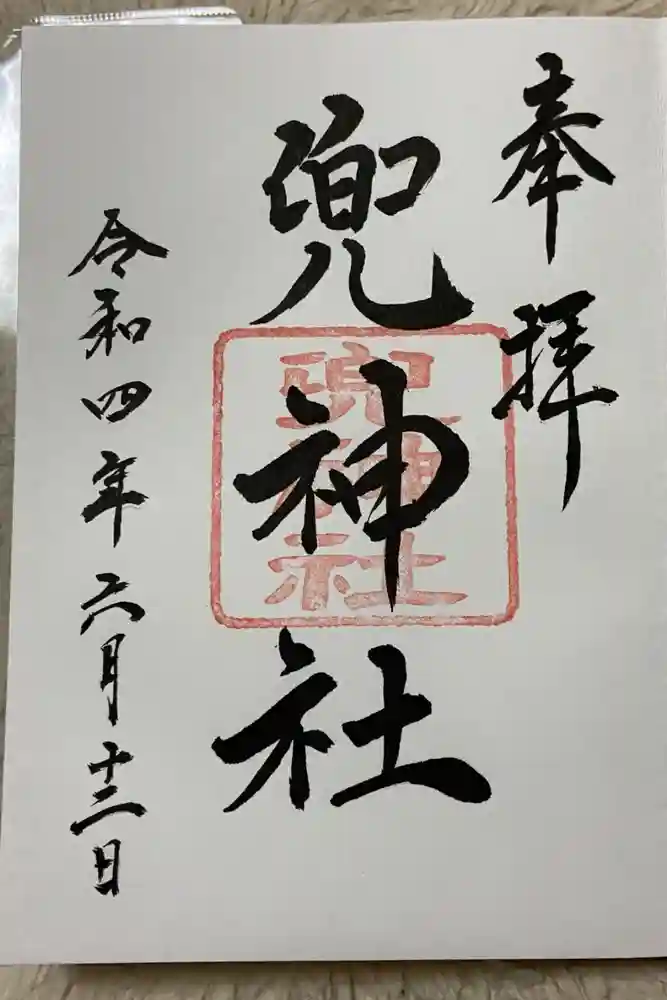 奉拝
兜神社
兜神社
令和四年六月十二日